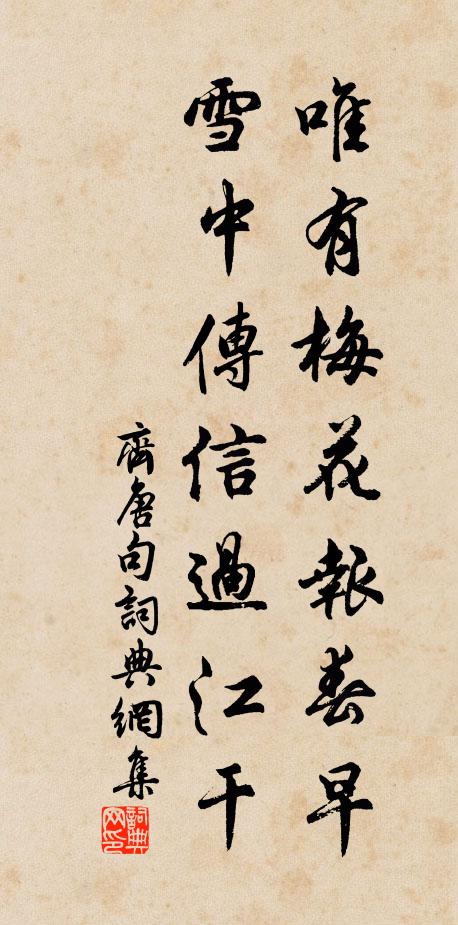 唯有梅花報春早
雪中傳信過江干
齊唐句詞典網集
詞典网印